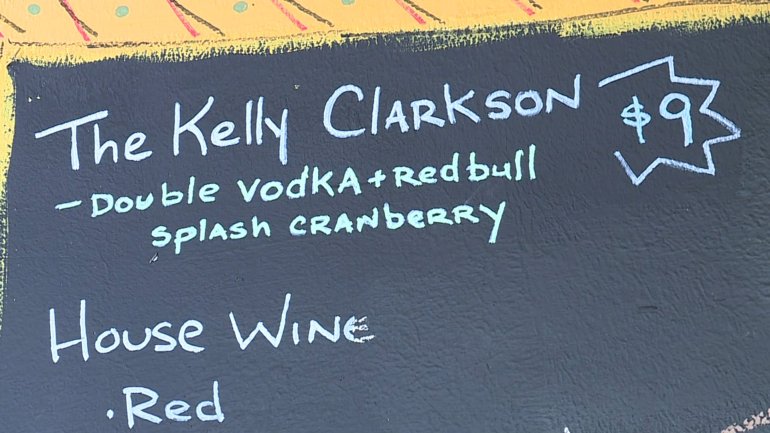 The Kelly CLARKSON $9
- Double VodKA + Redbull
SplAsh CRANbeRRY
House WINE
. Red